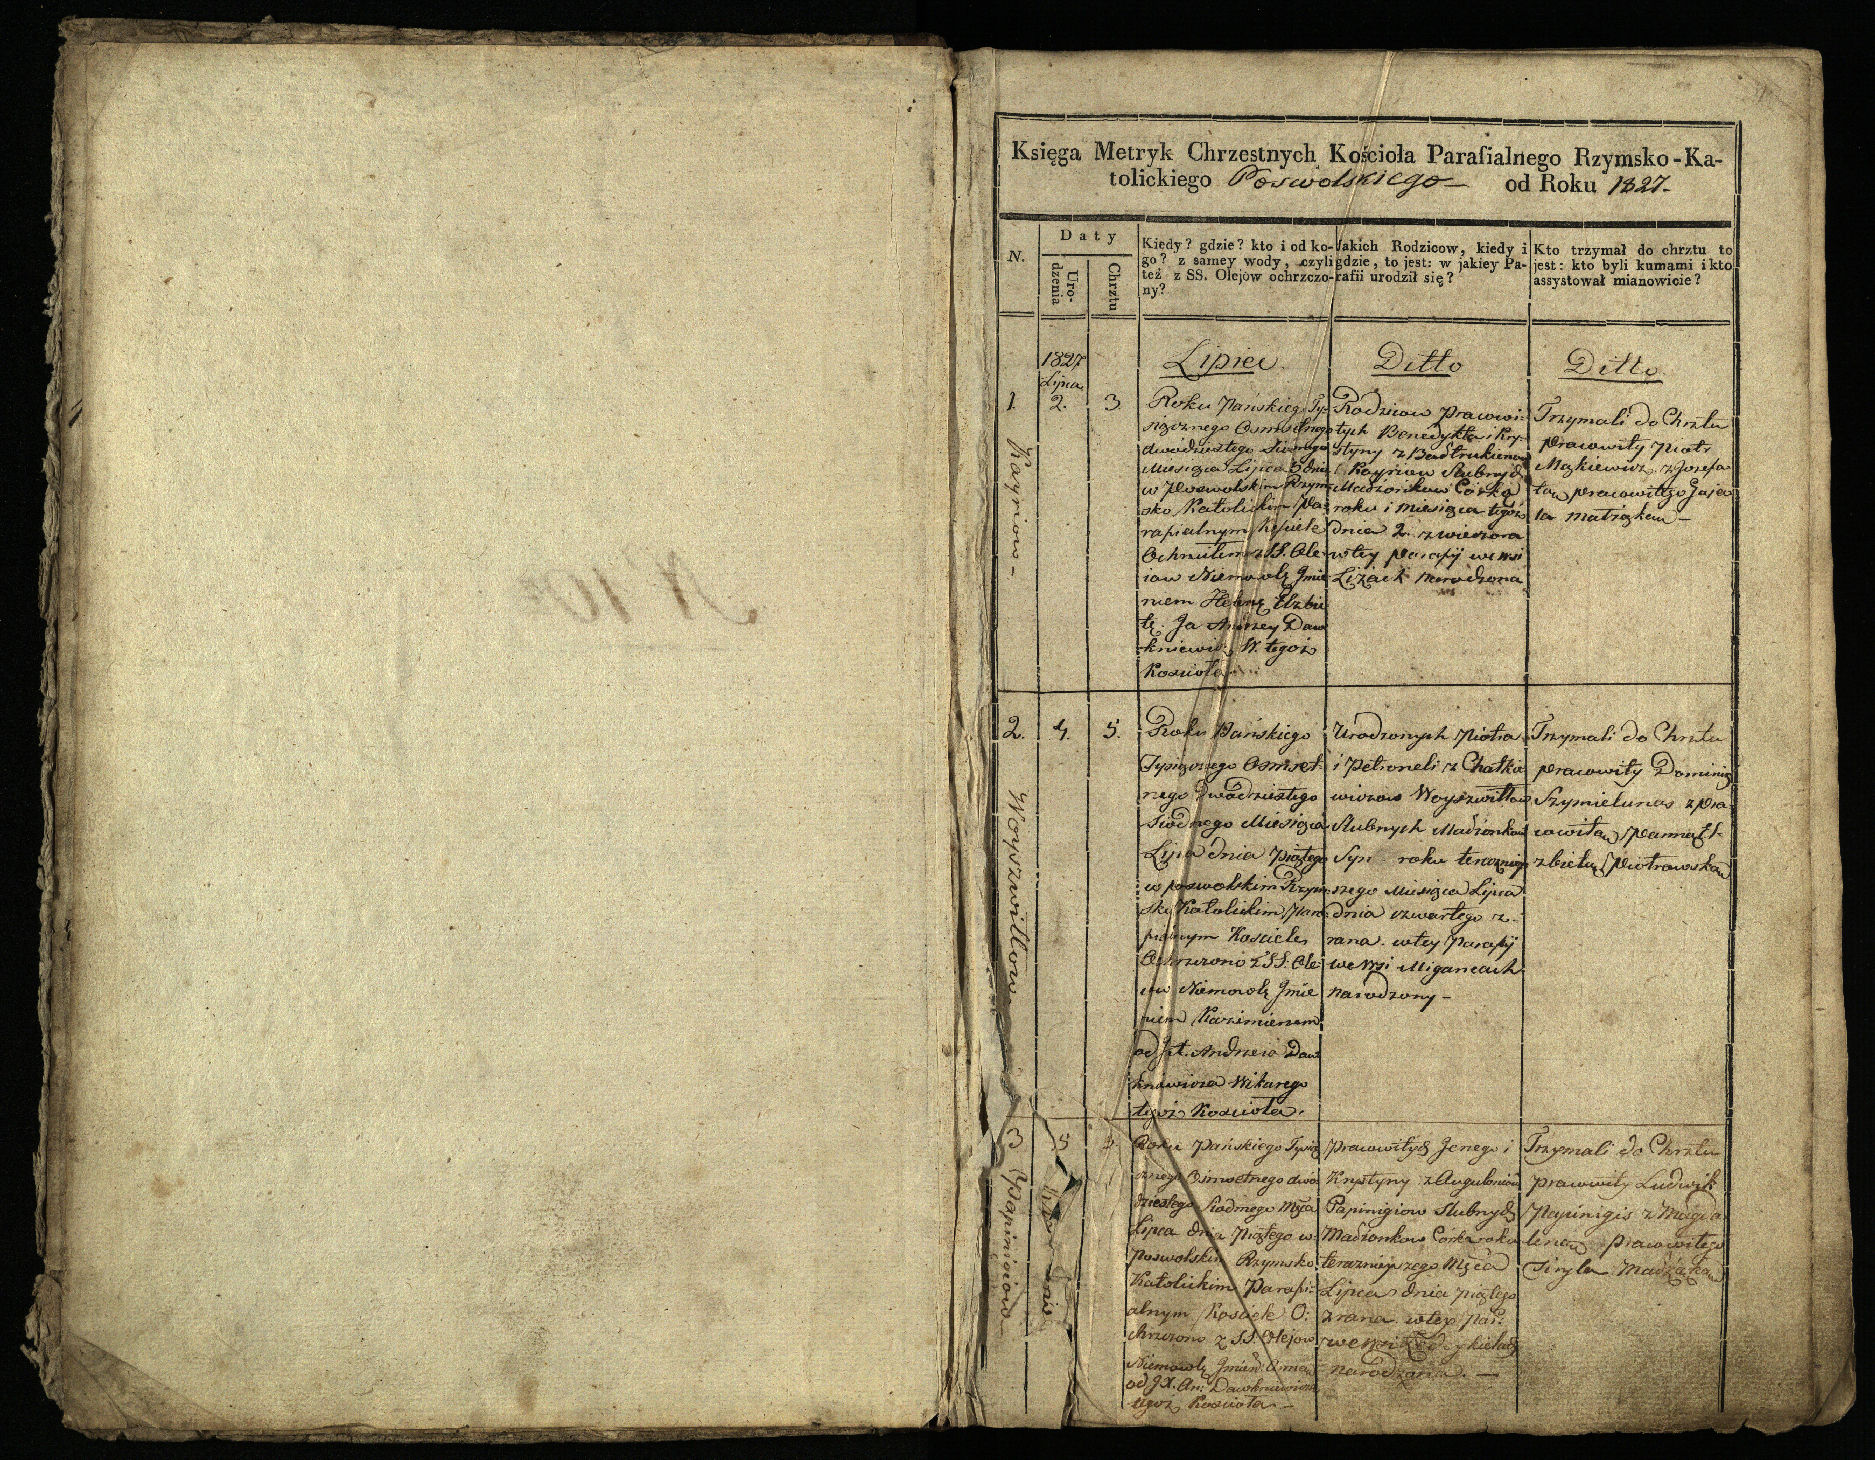 Księga Metryk Chrzestnych Kościoła Parafialnego Rzymsko-Ka-
tolickiego Poswolskiego od Roku 1827.
N.
Daty
Uro-
dzenia
Chrztu
Kiedy? gdzie? kto i od ko-
go? z samey wody, czyli
też z SS. Olejów ochrzczo-
ny?
Jakich Rodziców, kiedy i
gdzie, to jest: w jakiey Pa-
rafii urodził się?
Kto trzymał do chrztu to
jest: kto byli kumami i kto
assystował mianowicie?
1827
Lipca
Lipiec
Ditto
Ditto
1.
2.
3.
Roku Pańskiego Ty-
sięcznego Osmsetnego
dwódziestego Siodmego
Miesiąca Lipca 3 dnia
w Poswolskim Rzym-
sko Katolickim Pa-
rafialnym Kościele
Ochrzcilem z SS. Ole-
iow Niemowlę Jmie-
niem Helenę Elzbie-
tę. Ja Andrzey Daw-
kniewicz W. tegoż
Kościoła
Rodzicow pracowi-
tych Benedykta i Kry-
styny z
Slubnych
Małżonkow Córka
roku i miesiąca tegoż
dnia 2. z wieczora
w tey parafij we wsi
narodzona
Trzymali do Chrztu
pracowity Piotr
Mażkiewicz z Jozefa-
tą pracowitego
2.
4.
5.
Woyszwiłłow
Roku Pańskiego
Tysiącznego Osmset-
nego dwódziestego
Siodmego Miesiąca
Lipca dnia piątego
w poswolskim Rzym-
sko Katolickim Para-
fialnym Kościele
Ochrzczono z SS. Ole-
iow Niemowlę Jmie-
niem Kazimierzem
od Jx. Andrzeia Daw-
kniewicza Wikarego
tegoż Kościoła.
Urodzonych Piotra
i Petroneli z Chatkie-
wiczow Woyszwiłłow
Slubnych Małżonkow
Syn roku terazniey-
szego Miesiąca Lipca
dnia czwartego z
rana w tey Parafij
we wsi Migancach
narodzony –
Trzymali do Chrztu
pracowity Dominik
Szymielunas z pra-
cowitą Panną El-
zbietą Piotrowską
3
5
5
Papinigiow
Roku Pańskiego Tysią-
cznego Osmsetnego dwó-
dziestego Siodmego Mca
Lipca dnia Piątego w
Poswolskim Rzymsko
Katolickim Parafi-
alnym Kościele O-
chrzczono z SS. Olejow
Niemowlę Jmień. Anna
od Jx. An: Dawkniewicza
tegoż Kościoła –
Pracowitych Jerzego i
Krystyny z
Papinigiow Slubnych
Małżonkow Córka roku
teraznieyszego Mca
Lipca dnia piątego
z rana w tey Par:
we wsi
narodzona. –
Trzymali do Chrztu
pracowity Ludwik
Papinigis z Magda-
leną pracowitego